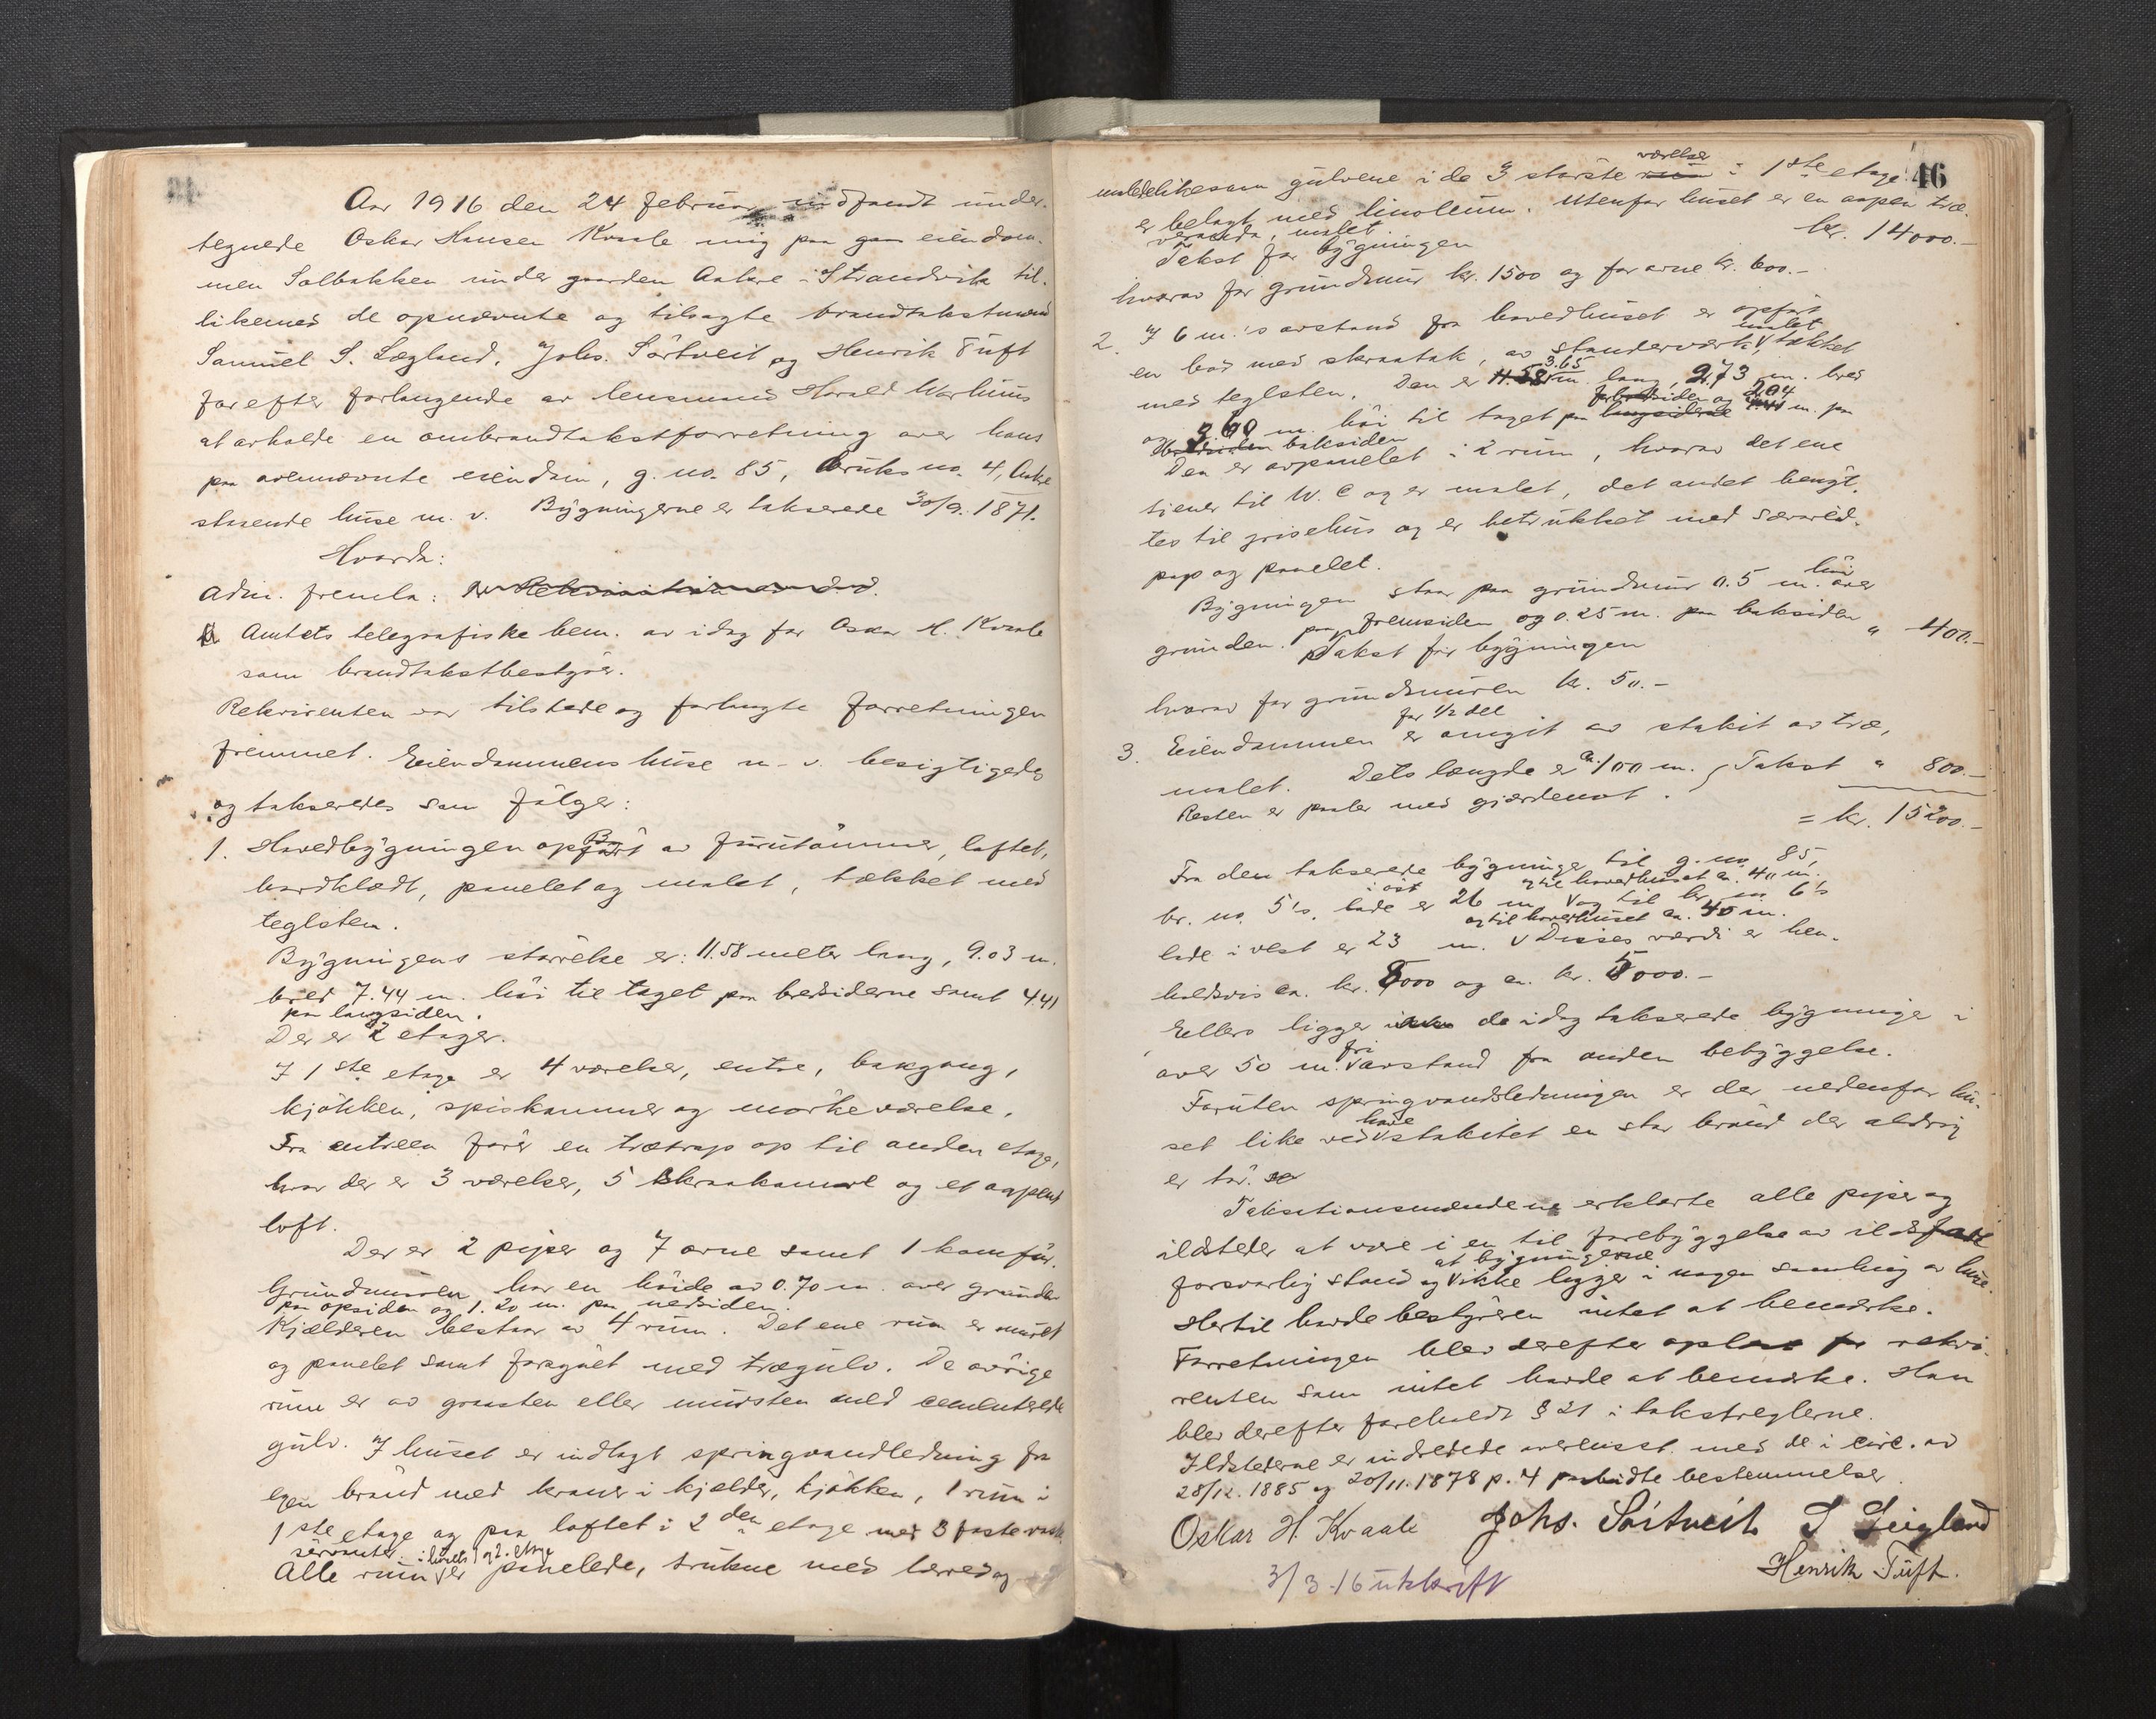 Aar 1916 den 24 februar indfandt under-
tegnede Oskar Hansen Kvaale mig paa eiendom-
men Solbakken under gaarden Aakre i Strandvik til-
likemed de opnævnte og tilsagte brandtakstmænd
Samuel S. Lægland, Johs. Sörtveit og Henrik Tuft
for efter forlangende av lensmand Harald Warhuus
at avholde en ombrandtakstforretning over hans
paa ovennævnte eiendom, g. no. 85, bruks no. 4, Aakre
staaende huse m. v. Bygningerne er takserede 30/9. 1871.
Hvorda:
Adm. fremla:
a Amtets telegrafiske bem. av idag for Oskar H. Kvaale
som brandtakstbestyrer.
Rekvirenten var tilstede og forlangte forretningen
fremmet. Eiendommens huse m. v. besigtigedes
og takseredes som fölger:
1. Hovedbygningen opfört av furutömmer, loftet,
bordklædt, panelet og malet, tækket med
teglsten.
Bygningens störrelse er: 11.58 meter lang, 9.03 m.
bred 7.44 m. höi til taget paa bredsiderne samt 4.41
paa langsiden.
Der er 2 etager.
I 1ste etage er 4 værelser, entre, bakgang,
kjökken, spiskammer og mörkeværelse.
Fra entreen förer en trætrap op til anden etage,
hvor der er 3 værelser, 5 skraakamre og et aapent
loft.
Der er 2 piper og 7 ovne samt 1 komfür.
Grundmuren har en höide av 0.70 m. over grunden
paa opsiden og 1.20 m. paa nedsiden.
Kjælderen bestaar av 4 rum. Det ene rum er muret
og panelet samt forsynet med trægulv. De övrige
rum er av graasten eller mursten med cementerede
gulv. I huset er indlagt springvandledning fra
egen brönd med kraner i kjælder, kjökken, 1 rum i
1ste etage og paa loftet i 2den etage med 3 faste vask
servanter. i husets 1 og 2. etage
Alle rum er panelede, trukne med lærred og
46
malede likesom gulvene i de 3 störste værelser i 1ste etage
er belagt med linoleum. Utenfor huset er en aapen træ-
veranda, malet.
Takst for bygningen kr. 14000.-
hvorav for grundmur kr. 1500 og for ovne kr. 600.-
2. I 6 m.'s avstand fra hovedhuset er opfört
en bod med skraatak, av standerværk, malet tækket
med teglsten. Den er 3.65 m. lang, 2.73 m. bred
og 3.60 m. höi til taget paa forsiden og 2.04 m. paa
baksiden
Den er avpanelet i 2 rum, hvorav det ene
tjener til W.C og er malet, det andet benyt-
tes til grisehus og er betrukket med
pap og panelet.
Bygningen staar paa grundmur 0.5 m. höi over
grunden. paa fremsiden og 0.25 m. paa baksiden
Takst for bygningen " 400.-
hvorav for grundmuren kr. 50.-
3. Eiendommen er for 1/2 del omgit av stakit av træ,
malet. Dets længde er ca. 100 m. } Takst " 800.-
Resten er pæler med gjærdenæt.
= kr. 15200.-
Fra den takserede bygninge til g. no. 85,
br. no. 5's lade i öst er 26 m. og til hovedhuset ca. 40 m. og til br. no 6's
lade i vest er 23 m. og til hovedhuset ca. 45 m. Disses værdi er hen-
holdsvis ca. kr. 8000 og ca. kr. 5000.-
Ellers ligger de idag takserede bygninge i
over 50 m. fri avstand fra anden bebyggelse.
Foruten springvandsledningen er der nedenfor hu-
set like ved have stakitet en stor brönd der aldrig
er tör.
Taksationsmændene erklærte alle piper og
ildsteder at være i en til forebyggelse av ildsfare
forsvarlig stand og at bygningerne ikke ligger i nogen samling av huse.
Hertil havde bestyreren intet at bemærke.
Forretningen blev derefter oplæst for rekvi-
renten som intet havde at bemærke. Han
blev derefter foreholdt § 21 i takstreglerne.
Ildstederne er indredede overensst. med de i circ. av
28/12. 1885 og 20/11. 1878 p. 4 paabudte bestemmelser.
Oskar H. Kvaale Johs. Sörtveit S Leigland
Henrik Tuft.
3/3-16 utskrift